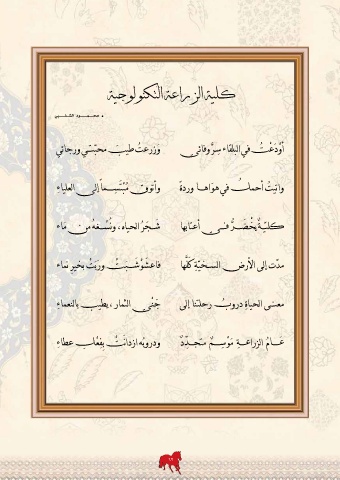 كلية الزراعة التكنولوجية
د. محمود الشلبي
أوْدَعْتُ في البلقاء سِرَّ وفائي وزرعتُ طيبَ محبّتي ورجائي
وأتيتُ أحملُ في هواها وردةً وأتوقُ مُبْتَسِماً إلى العلياءِ
كليّةٌ يَخْضَرُّ في أعتابها شَجَرُ الحياه، ونُسْغهُ من مَاء
مدّت إلى الأرض السخيّةِ كفَّها فاعشوْشَبَتْ وربَتْ بخير نماء
معنى الحياةِ دروبُ رحلتنا إلى جَنْي الثمار، يطيبُ بالنعماءِ
عَامُ الزراعةِ مَوْسِمٌ متجدِّدٌ ودروبُه ازدانَتْ بِفِعْلِ عطاءِ